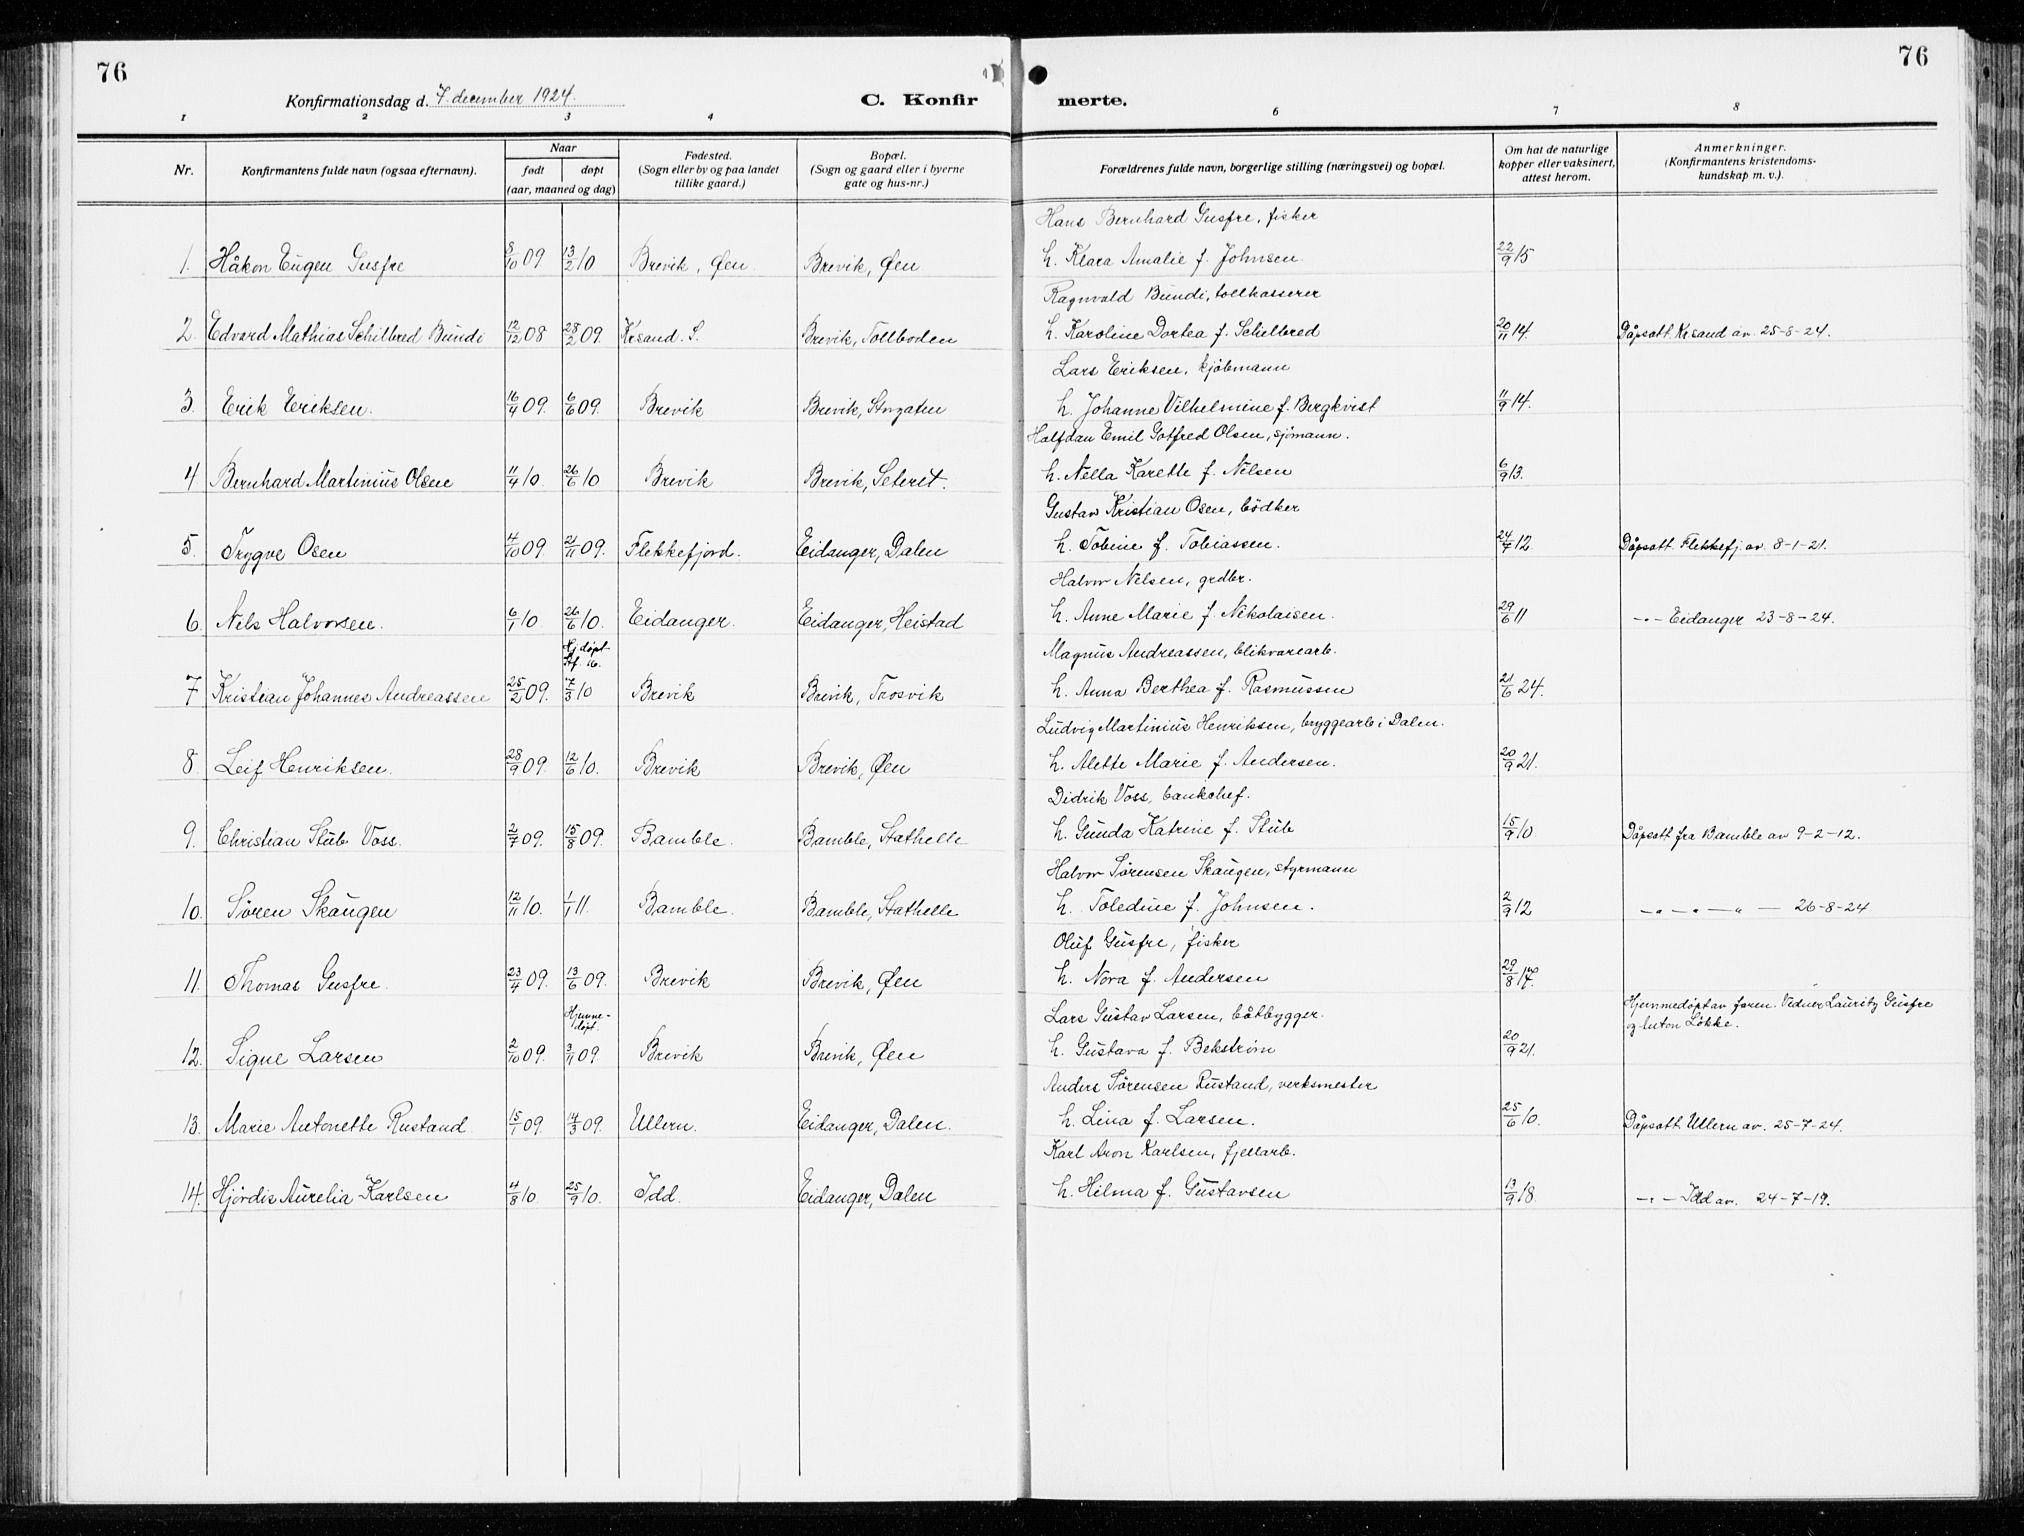 76
76
Konfirmationsdag d. 7. december 1924.
C. Konfir
merte.
1 2 3 4 6 7 8
Nr.
Konfirmantens fulde navn (ogsaa efternavn).
Naar
født døpt
(aar, maaned og dag)
Fødested.
(Sogn eller by og paa landet
tillike gaard.)
Bopæl.
(Sogn og gaard eller i byerne
gate og hus-nr.)
Forældrenes fulde navn, borgerlige stilling (næringsvei) og bopæl.
Om hat de naturlige
kopper eller vaksinert,
attest herom.
Anmerkninger.
(Konfirmantens kristendoms-
kundskap m. v.).
Hans Bernhard Gusfre, fisker
1. Håkon Eugen Gusfre 8/10 09 13/2 10 Brevik, Øen. Brevik, Øen h. Klara Amalie f. Johnsen. 22/9 15
Ragnvald Bundi, tollkasserer
2. Edvard Mathias Schilbred Bundi 12/12 08 28/2 09. Krsand. S. Brevik, Tollboden h. Karoline Dortea f. Schilbred 20/11 14. Dåpsatt. Kr.sand av. 25-8-24.
Lars Eriksen, kjøbmann
3. Erik Eriksen. 16/4 09. 6/6 09. Brevik Brevik, Storgaten h. Johanne Vilhelmine f. Bergkvist 11/9 14.
Halfdan Emil Gotfred Olsen, sjømann.
4 Bernhard Martinius Olsen 11/4 10 26/6 10 Brevik Brevik, Seteret. h. Nella Karette f. Nilsen 6/9 13.
Gustav Kristian Osen, bødker
5. Trygve Osen 4/10 09. 21/11 09. Flekkefjord. Eidanger, Dalen h. Tobine f. Tobiassen. 24/7 12. Dåpsatt. Flekkefj. av. 8-1-21.
Halvor Nilsen, grdbr.
6. Nils Halvorsen. 6/1 10 26/6 10. Eidanger. Eidanger, Heistad h. Anne Marie f. Nikolaisen. 29/6 11 -"- Eidanger 23-8-24.
Hj døpt
Stf. 16.
Magnus Andreassen, blikvarearb.
7 Kristian Johannes Andreassen 25/2 09. 7/3 10 Brevik Brevik, Trosvik h. Anna Berthea f. Rasmussen 21/6 24.
Ludvig Martinius Henriksen, bryggearb i Dalen.
8. Leif Henriksen. 28/9 09. 12/6 10. Brevik Brevik, Øen h. Alette Marie f. Andersen. 20/9 21.
Didrik Voss, bankchef.
9. Christian Stub Voss. 2/7 09. 15/8 09. Bamble. Bamble, Stathelle h. Gunda Katrine f. Stub 15/9 10. Dåpsatt fra Bamble av 9-2-12.
Halvor Sørensen Skaugen, styrmann
10. Søren Skaugen 12/11 10. 1/1 11. Bamble. Bamble, Stathelle h. Toledine f. Johnsen. 2/9 12 -"-"-"- 26-8-24
Oluf Gusfre, fisker
11. Thomas Gusfre. 23/4 09. 13/6 09. Brevik Brevik, Øen h. Nora f. Andersen 29/8 17.
Hjemme-
døpt.
Lars Gustav Larsen, båtbygger.
Hjemmedøpt av faren. Vidner Lauritz Gusfre
og Løkke.
12. Signe Larsen 2/10 09. 3/11 09. Brevik Brevik, Øen h. Gustava f. Bekstrøm 20/9 21.
Anders Sørensen Rustand, verksmester
13. Marie Antonette Rustand. 15/1 09. 14/3 09. Ullern. Eidanger, Dalen. h. Lina f. Larsen. 25/6 10. Dåpsatt. Ullern av. 25-7-24.
Karl Aron Karlsen, fjellarb.
14. Hjørdis Aurelia Karlsen 4/8 10. 25/9 10. Idd. Eidanger, Dalen h. Hilma f. Gustavsen 13/9 18. -"- Idd av. 24-7-19.